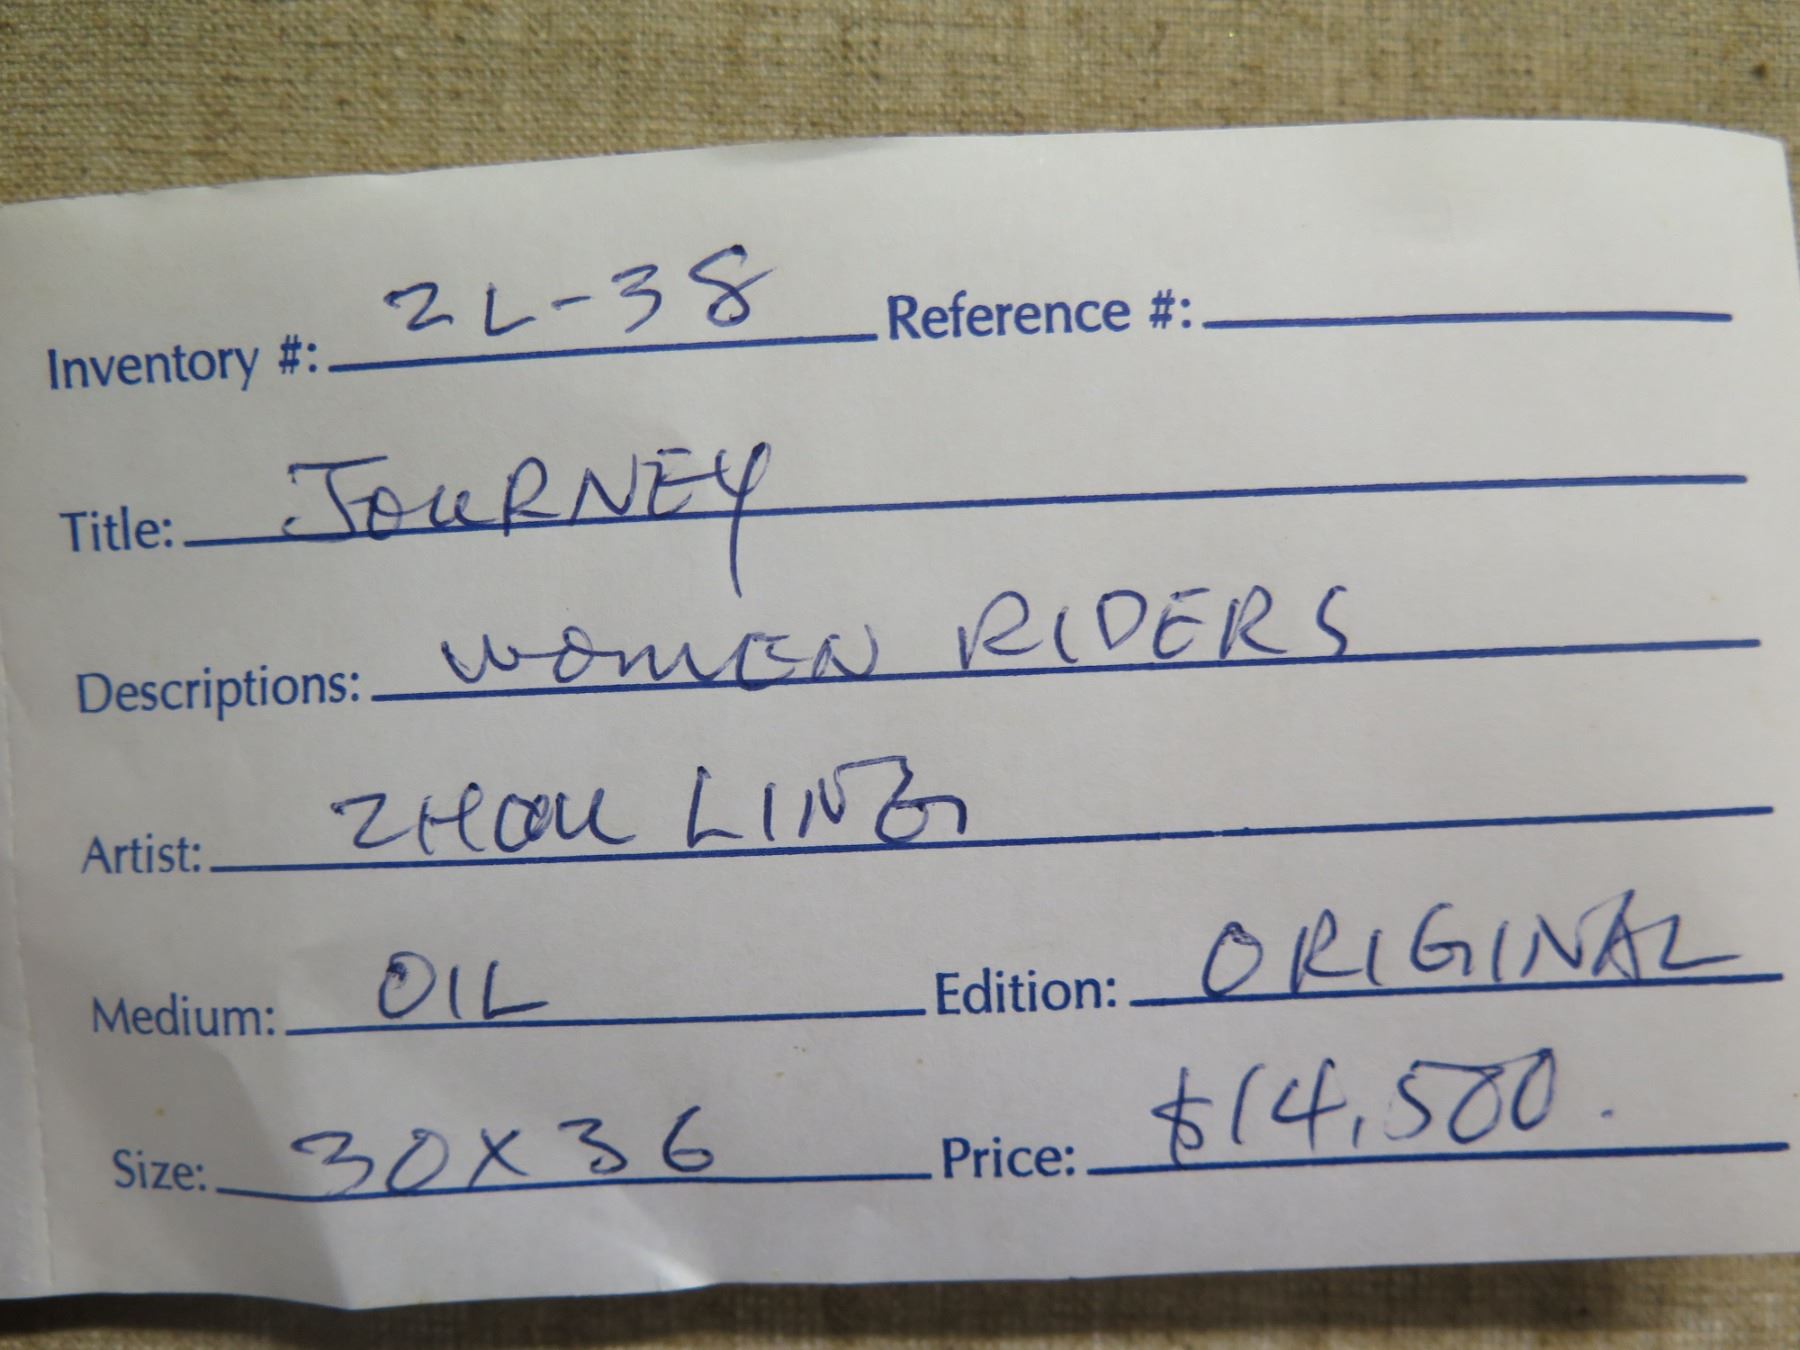 Inventory #: ZL-38 Reference #:
Title: JOURNEY
Descriptions: WOMEN RIDERS
Artist: ZHOU LING
Medium: OIL Edition: ORIGINAL
Size: 30X36 Price: $14,500.